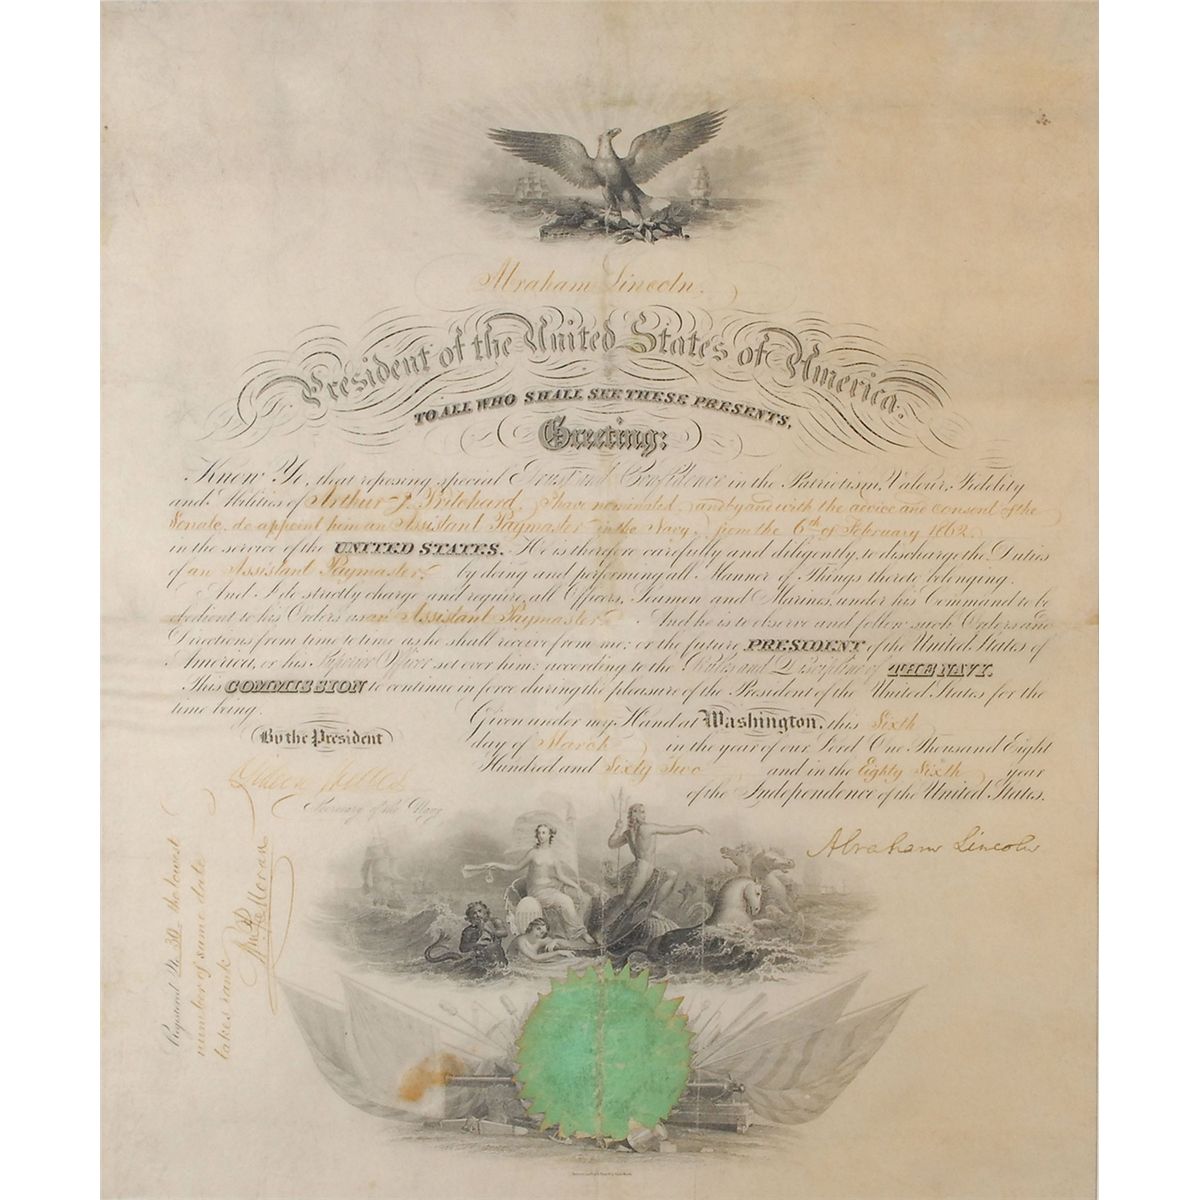 Abraham Lincoln.
President of the United States of America.
TO ALL WHO SHALL SEE THESE PRESENTS,
Greeting:
Know Ye, that reposing special Trust and Confidence in the Patriotism, Valour, Fidelity
and Abilities of Arthur J. Pritchard, I have nominated, and by and with the advice and consent of the
Senate, do appoint him an Assistant Paymaster in the Navy, from the 6th of February 1862,
in the service of the UNITED STATES. He is therefore carefully and diligently to discharge the Duties
of an Assistant Paymaster by doing and performing all Manner of Things thereto belonging.
And I do strictly charge and require all Officers, Seamen and Marines, under his Command to be
obedient to his Orders as an Assistant Paymaster. And he is to observe and follow such Orders and
Directions from time to time as he shall receive from me; or the future PRESIDENT of the United States of
America, or his Superior Officer set over him; according to the Rules and Discipline of THE NAVY.
This COMMISSION to continue in force during the pleasure of the President of the United States for the
time being.
Given under my Hand at Washington, this Sixth
day of March in the year of our Lord One Thousand Eight
Hundred and Sixty Two and in the Eighty Sixth year
of the Independence of the United States.
By the President
Gideon Welles
Secretary of the Navy
Abraham Lincoln
Registered No. 30 the lowest
number of same date
takes rank